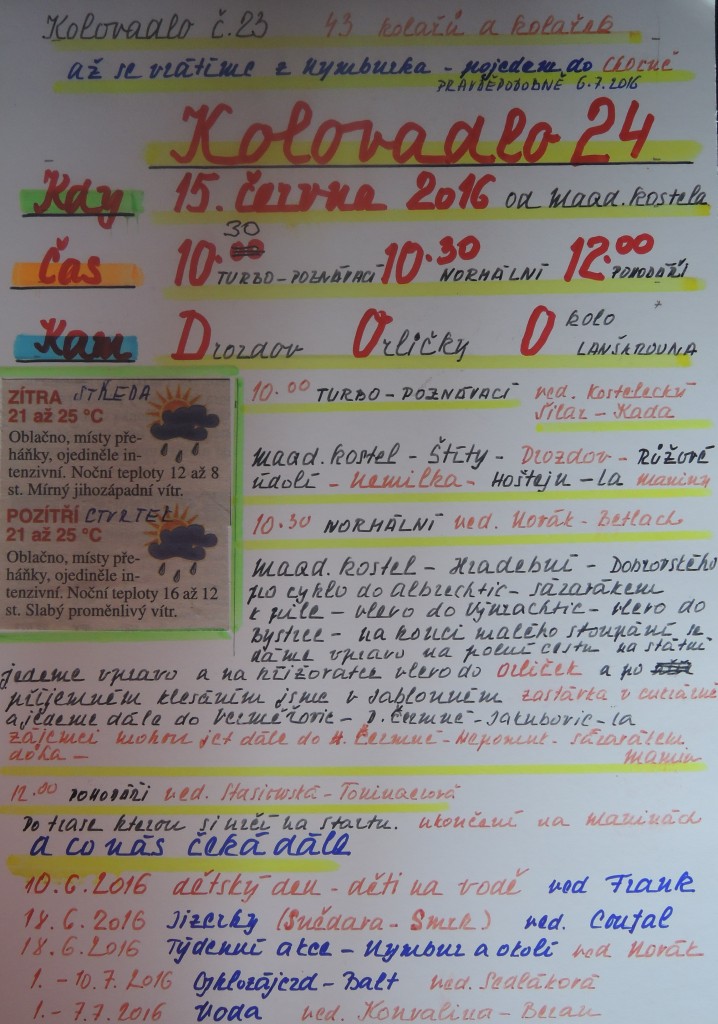 Kolovadlo č.23 43 kolařů a kolařek
až se vrátíme z Nymburka - pojedem do CHOCNĚ
PRAVDĚPODOBNĚ 6.7.2016
Kolovadlo 24
Kdy 15. června 2016 od maad. kostela
30
Čas 10.00 TURBO-POZNÁVACÍ 10.30 NORMÁLNÍ 12.00 POHODÁŘI
Kam Drozdov Orličky Okolo LANŠKROUNA
ZÍTRA STŘEDA
21 až 25 °C
Oblačno, místy pře-
háňky, ojediněle in-
tenzivní. Noční teploty 12 až 8
st. Mírný jihozápadní vítr.
POZÍTŘÍ ČTVRTEK
21 až 25 °C
Oblačno, místy pře-
háňky, ojediněle in-
tenzivní. Noční teploty 16 až 12
st. Slabý proměnlivý vítr.
10.00 TURBO-POZNÁVACÍ ved. Kostelecký
Šilar - Kada
maad. kostel - Štíty - Drozdov - Růžové
údolí - Nemilka - Hoštejn - La maniny
10.30 NORMÁLNÍ ved. Novák - Betlach
maad. kostel - Hradební - Dobrovského
po cyklo do Albrechtic - Sázarákem
k pile - vlevo do Výprachtic - vlevo do
Bystřec - na konci malého stoupání se
dáme vpravo na polní cestu na státní
jedeme vpravo a na křižovatce vlevo do Orliček a po
příjemném klesáním jsme v Jablonném zastávka v cukrárně
a jedeme dále do Verměřovic - D. Čermné - Jakubovic - La
zájemci mohou jet dále do H. Čermné - Nepomuk - Sázarákem
doha - manin
12.00 POHODÁŘI ved. Stasiowská - Tomnacová
Po trase kterou si určí na startu. ukončení na maninách
a co nás čeká dále
10.6.2016 dětský den - děti na vodě ved Frank
18.6.2016 Jizerky (Snědara - Smrk) ved. Coufal
18.6.2016 Týdenní akce - Nymbur a okolí ved Novák
1. - 10.7.2016 Cyklozájezd - Balt ved. Sedláková
1. - 7.7.2016 Voda ved. Konvalina - Beran